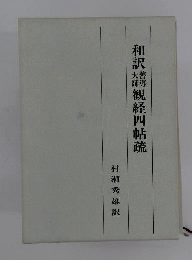 和訳善導大師観経四帖疏
村瀬秀雄訳